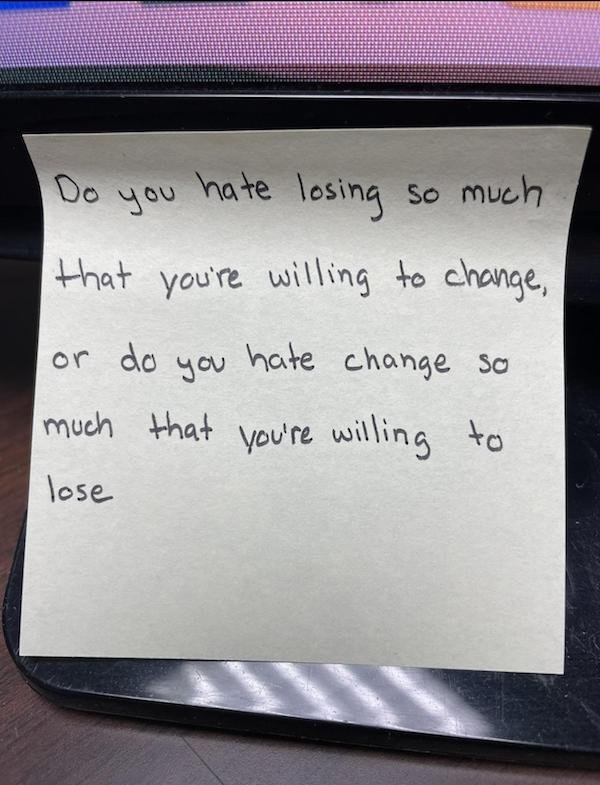 Do you hate losing so much
that you're willing to change,
or do you hate change so
much that you're willing to
lose